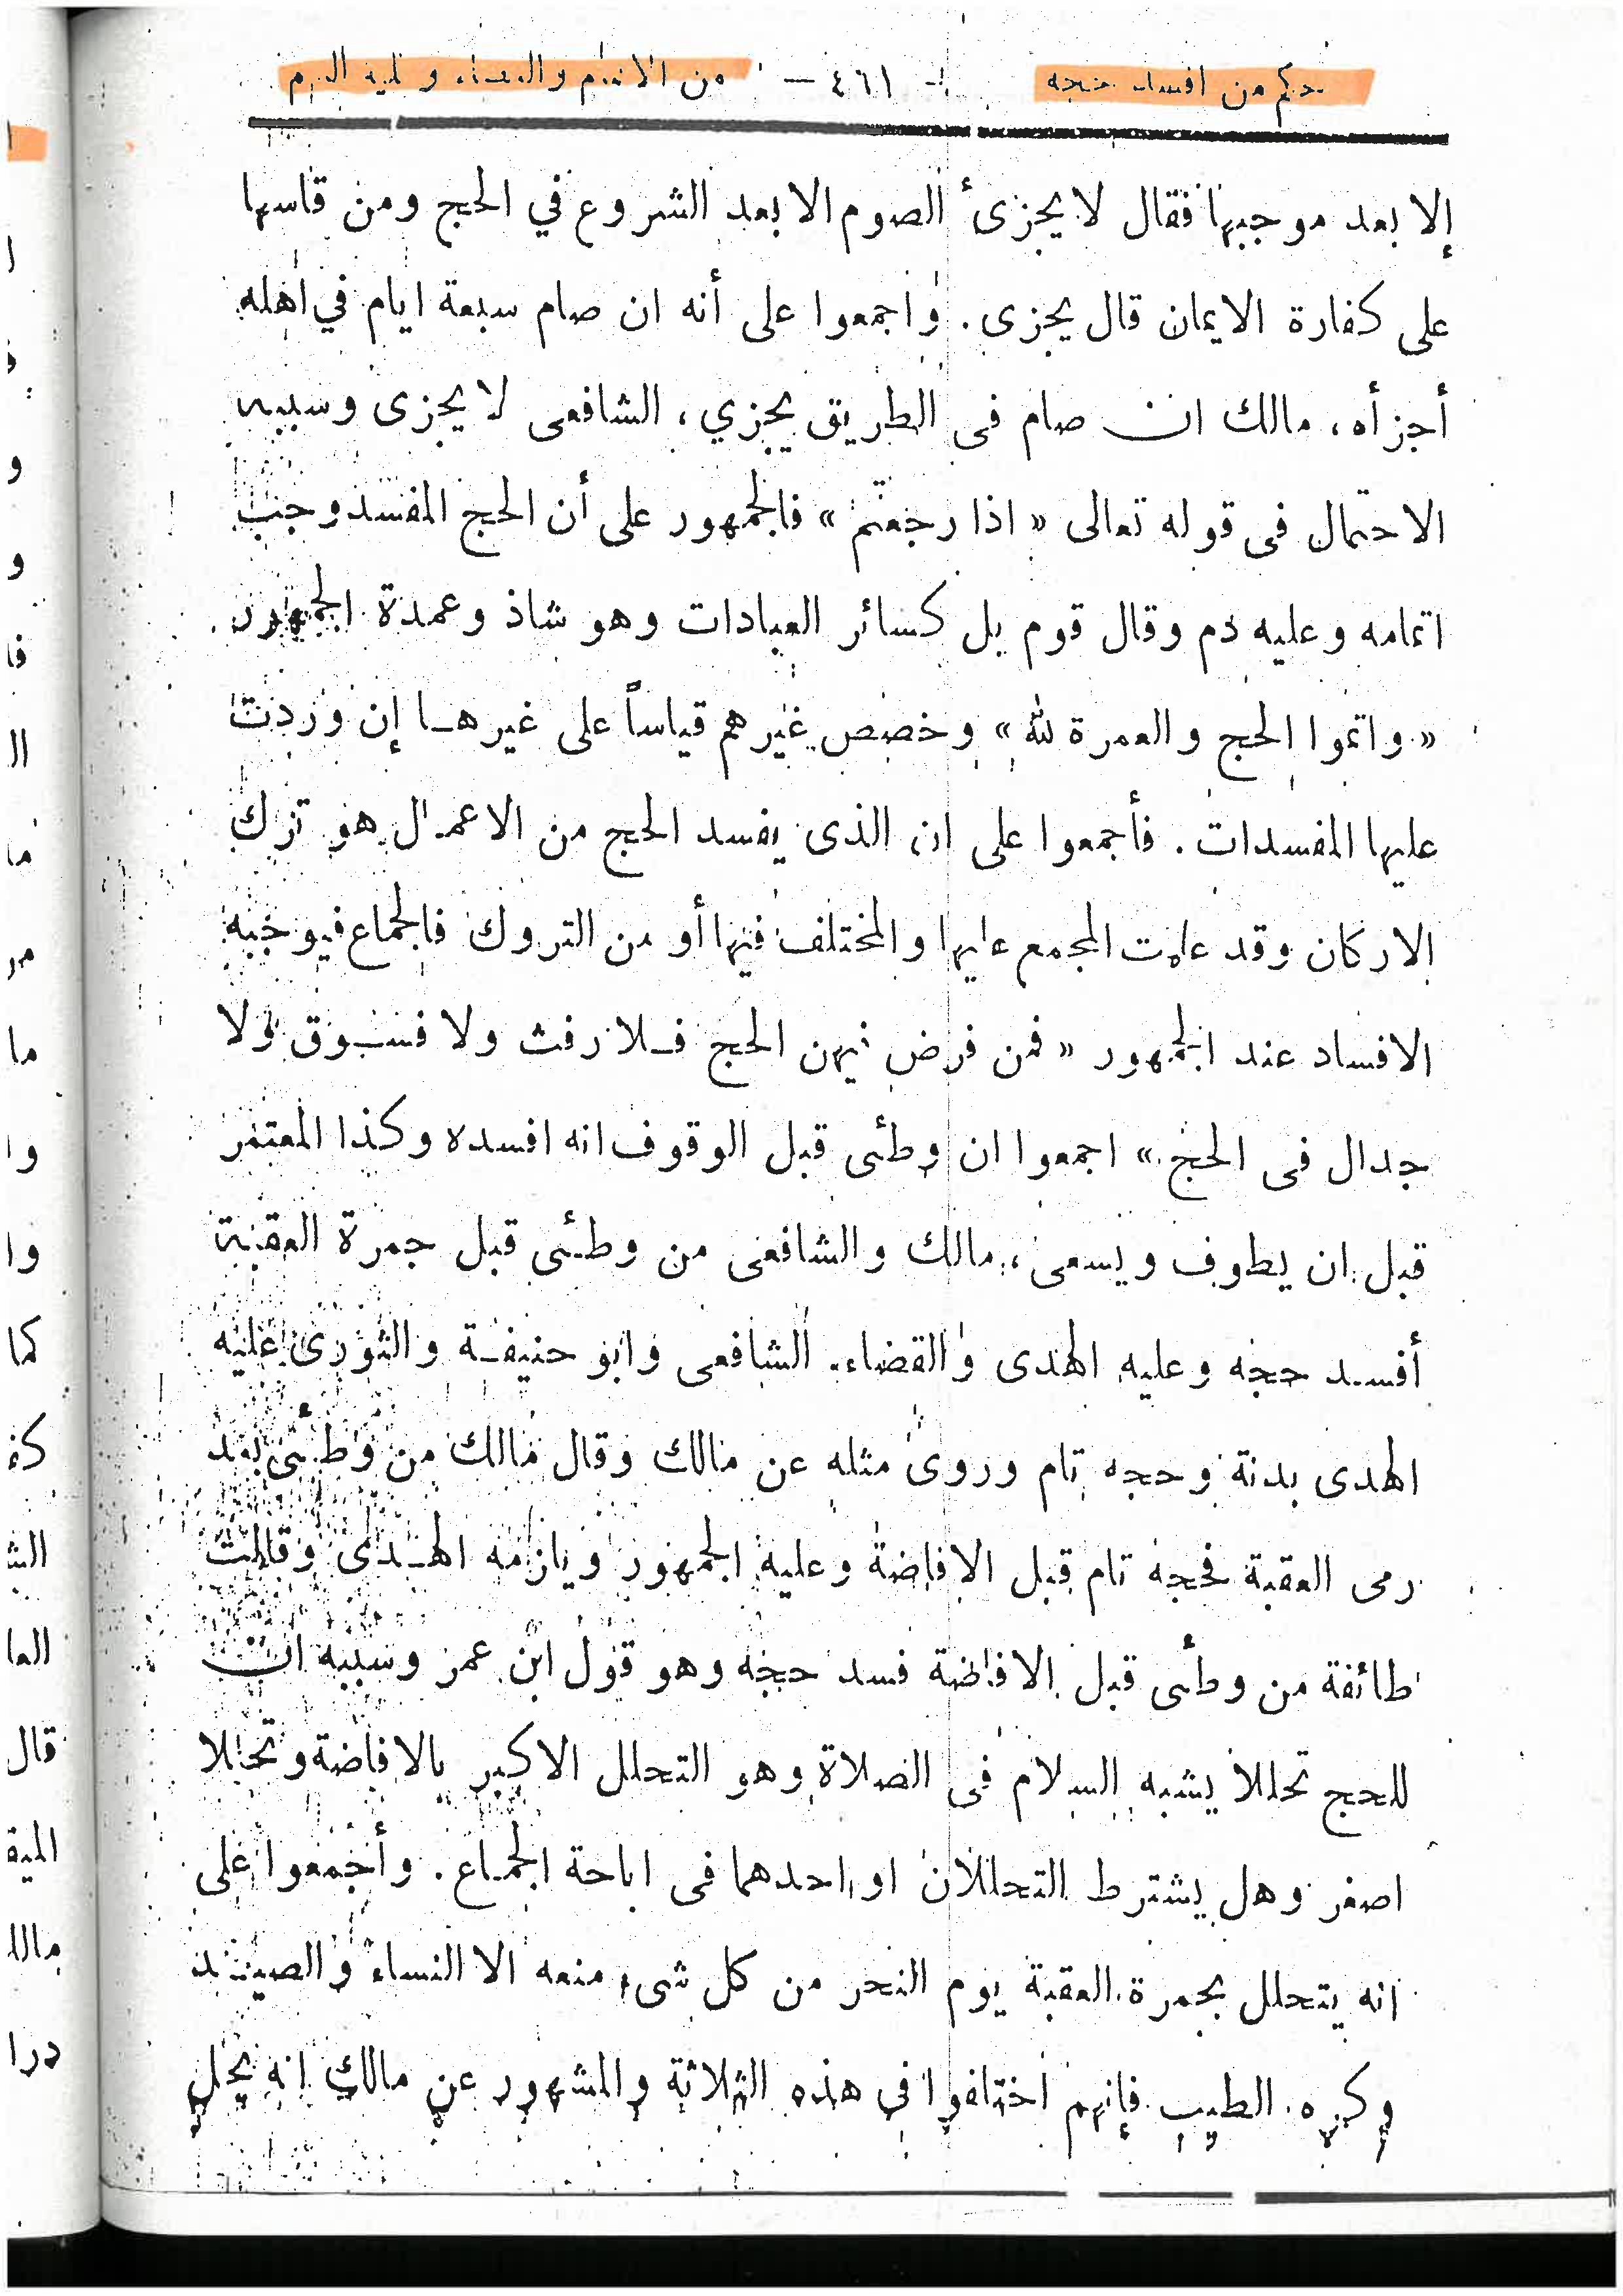 حكم من افسد حجه - ٤٦١ - من الاتمام والقضاء وعليه الدم
إلا بعد موجبها فقال لا يجزىٔ الصوم الا بعد الشروع في الحج ومن قاسها
على كفارة الايمان قال يجزى. واجمعوا على أنه ان صام سبعة ايام في اهله
أجزأه، مالك ان صام فى الطريق يجزي، الشافعى لا يجزى وسببه
الاحتمال فى قوله تعالى « اذا رجعتم » فالجمهور على أن الحج المفسد وجب
اتمامه وعليه دم وقال قوم بل كسائر العبادات وهو شاذ وعمدة الجمهور
« واتموا الحج والعمرة لله » وخصص غيرهم قياساً على غيرها إن وردت
عليها المفسدات. فأجمعوا على ان الذى يفسد الحج من الاعمال هو ترك
الاركان وقد علمت المجمع عليها والمختلف فيها أو من التروك فالجماع فيوجبه
الافساد عند الجمهور « فمن فرض فيهن الحج فلا رفث ولا فسوق ولا
جدال فى الحج » اجمعوا ان وطئى قبل الوقوف انه افسده وكذا المعتمر
قبل ان يطوف ويسعى، مالك والشافعى من وطئى قبل جمرة العقبة
أفسد حجه وعليه الهدى والقضاء. الشافعى وابو حنيفة والثورى عليه
الهدى بدنة وحجه تام وروى مثله عن مالك وقال مالك من وطئى بعد
رمى العقبة فحجه تام قبل الافاضة وعليه الجمهور ويلزمه الهدى وقالت
طائفة من وطأى قبل الافاضة فسد حجه وهو قول ابن عمر وسببه ان
للحج تحللا يشبه السلام فى الصلاة وهو التحلل الاكبر بالافاضة وتحللا
اصغر وهل يشترط التحللان او احدهما فى اباحة الجماع. وأجمعوا على
انه يتحلل بجمرة العقبة يوم النحر من كل شىء منعه الا النساء والصيد
وكره الطيب فإنهم اختلفوا في هذه الثلاثة والمشهور عن مالك انه يحل